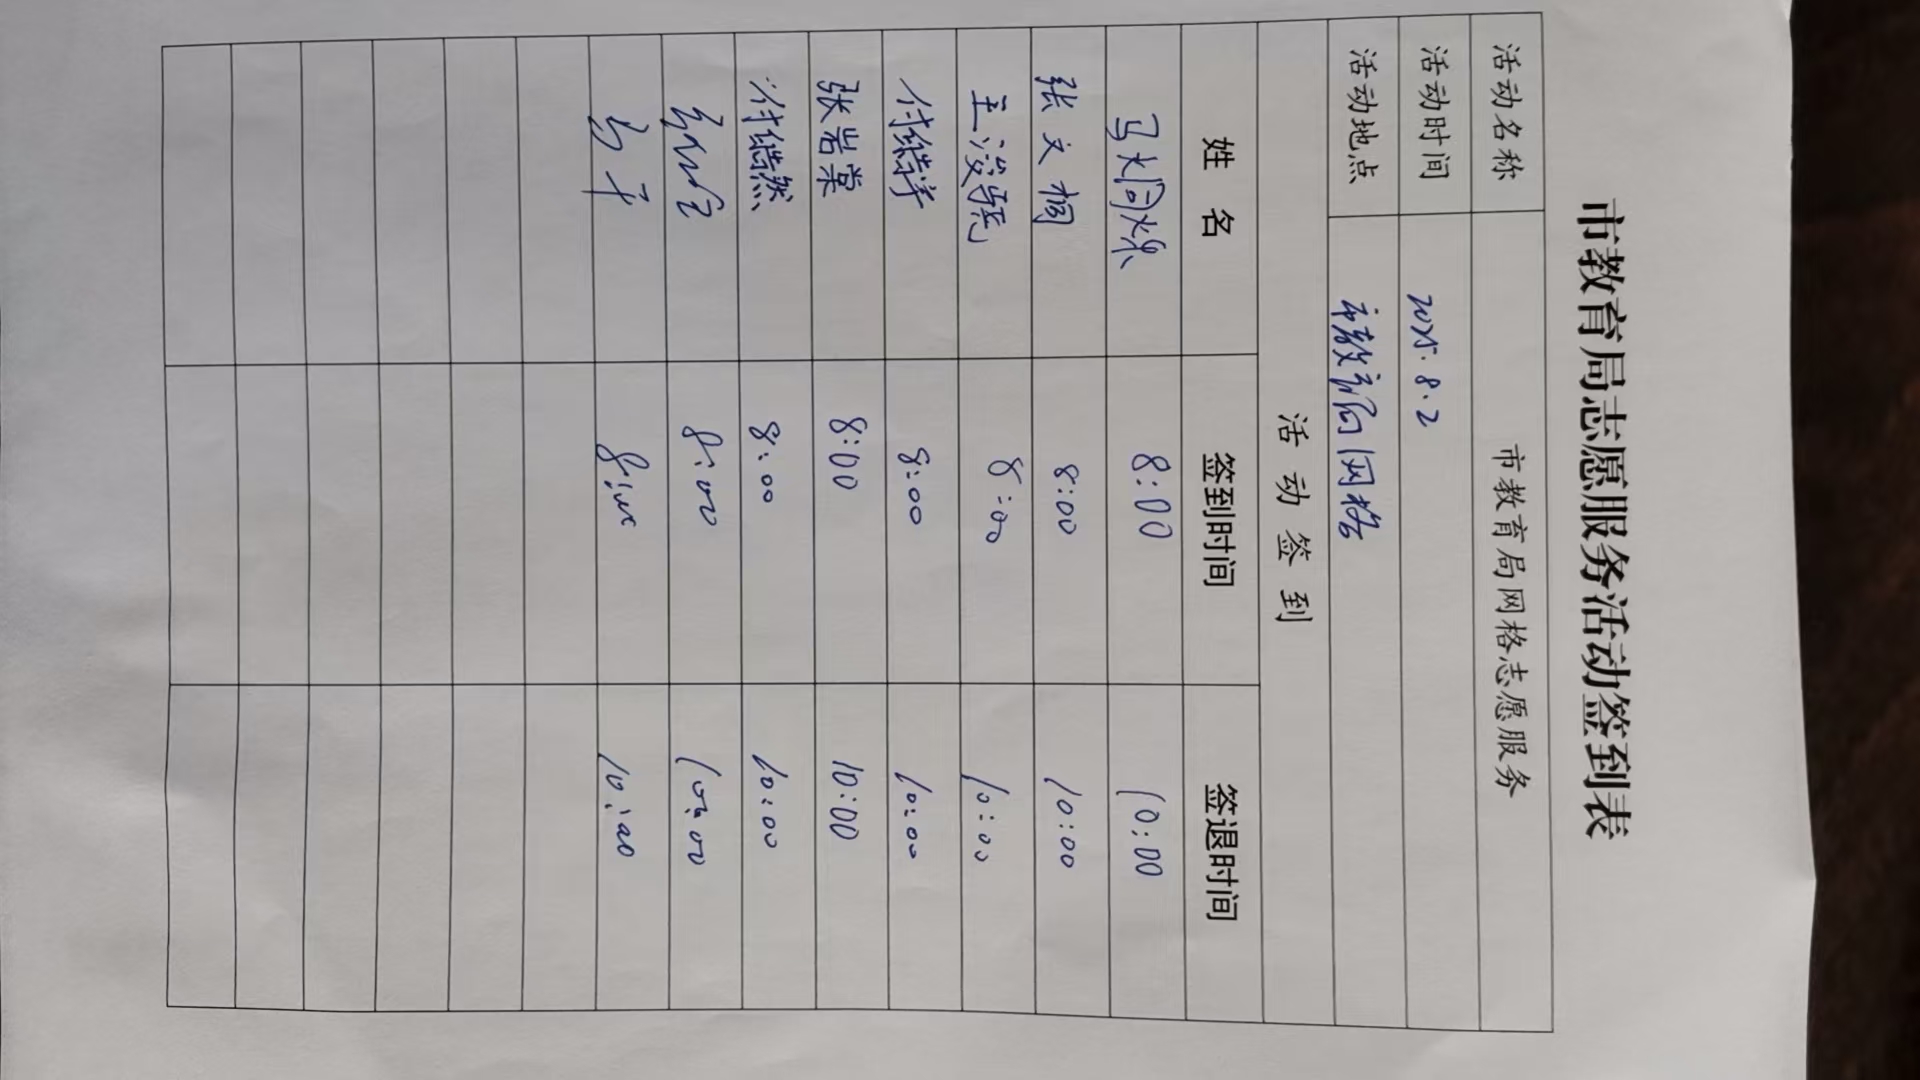 市教育局志愿服务活动签到表
活动名称 市教育局网格志愿服务
活动时间 2025.8.2
活动地点 市教育局网格
活动签到
姓名 签到时间 签退时间
8:00 10:00
张文桐 8:00 10:00
王浚骋 8:00 10:00
付继学 8:00 10:00
张岩棠 8:00 10:00
许继然 8:00 10:00
8:00 10:00
8:00 10:00